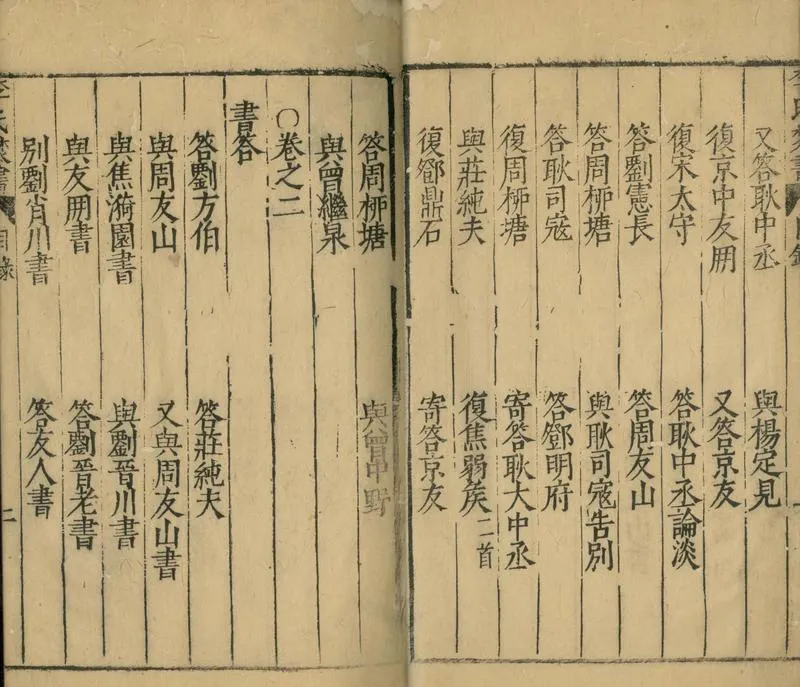 李氏焚書 目錄
又答耿中丞 與楊定見
復京中友朋 又答京友
復宋太守 答耿中丞論淡
答劉憲長 答周友山
答周柳塘 與耿司寇告別
答耿司寇 答鄧明府
復周柳塘 寄答耿大中丞
與莊純夫 復焦弱矦二首
復鄧鼎石 寄答京友
答周柳塘 與曾中野
與曾繼泉
○卷之二
書答
答劉方伯 答莊純夫
與周友山 又與周友山書
與焦漪園書 與劉晉川書
與友朋書 答劉晉老書
別劉肖川書 答友人書
李氏焚書 目錄 二